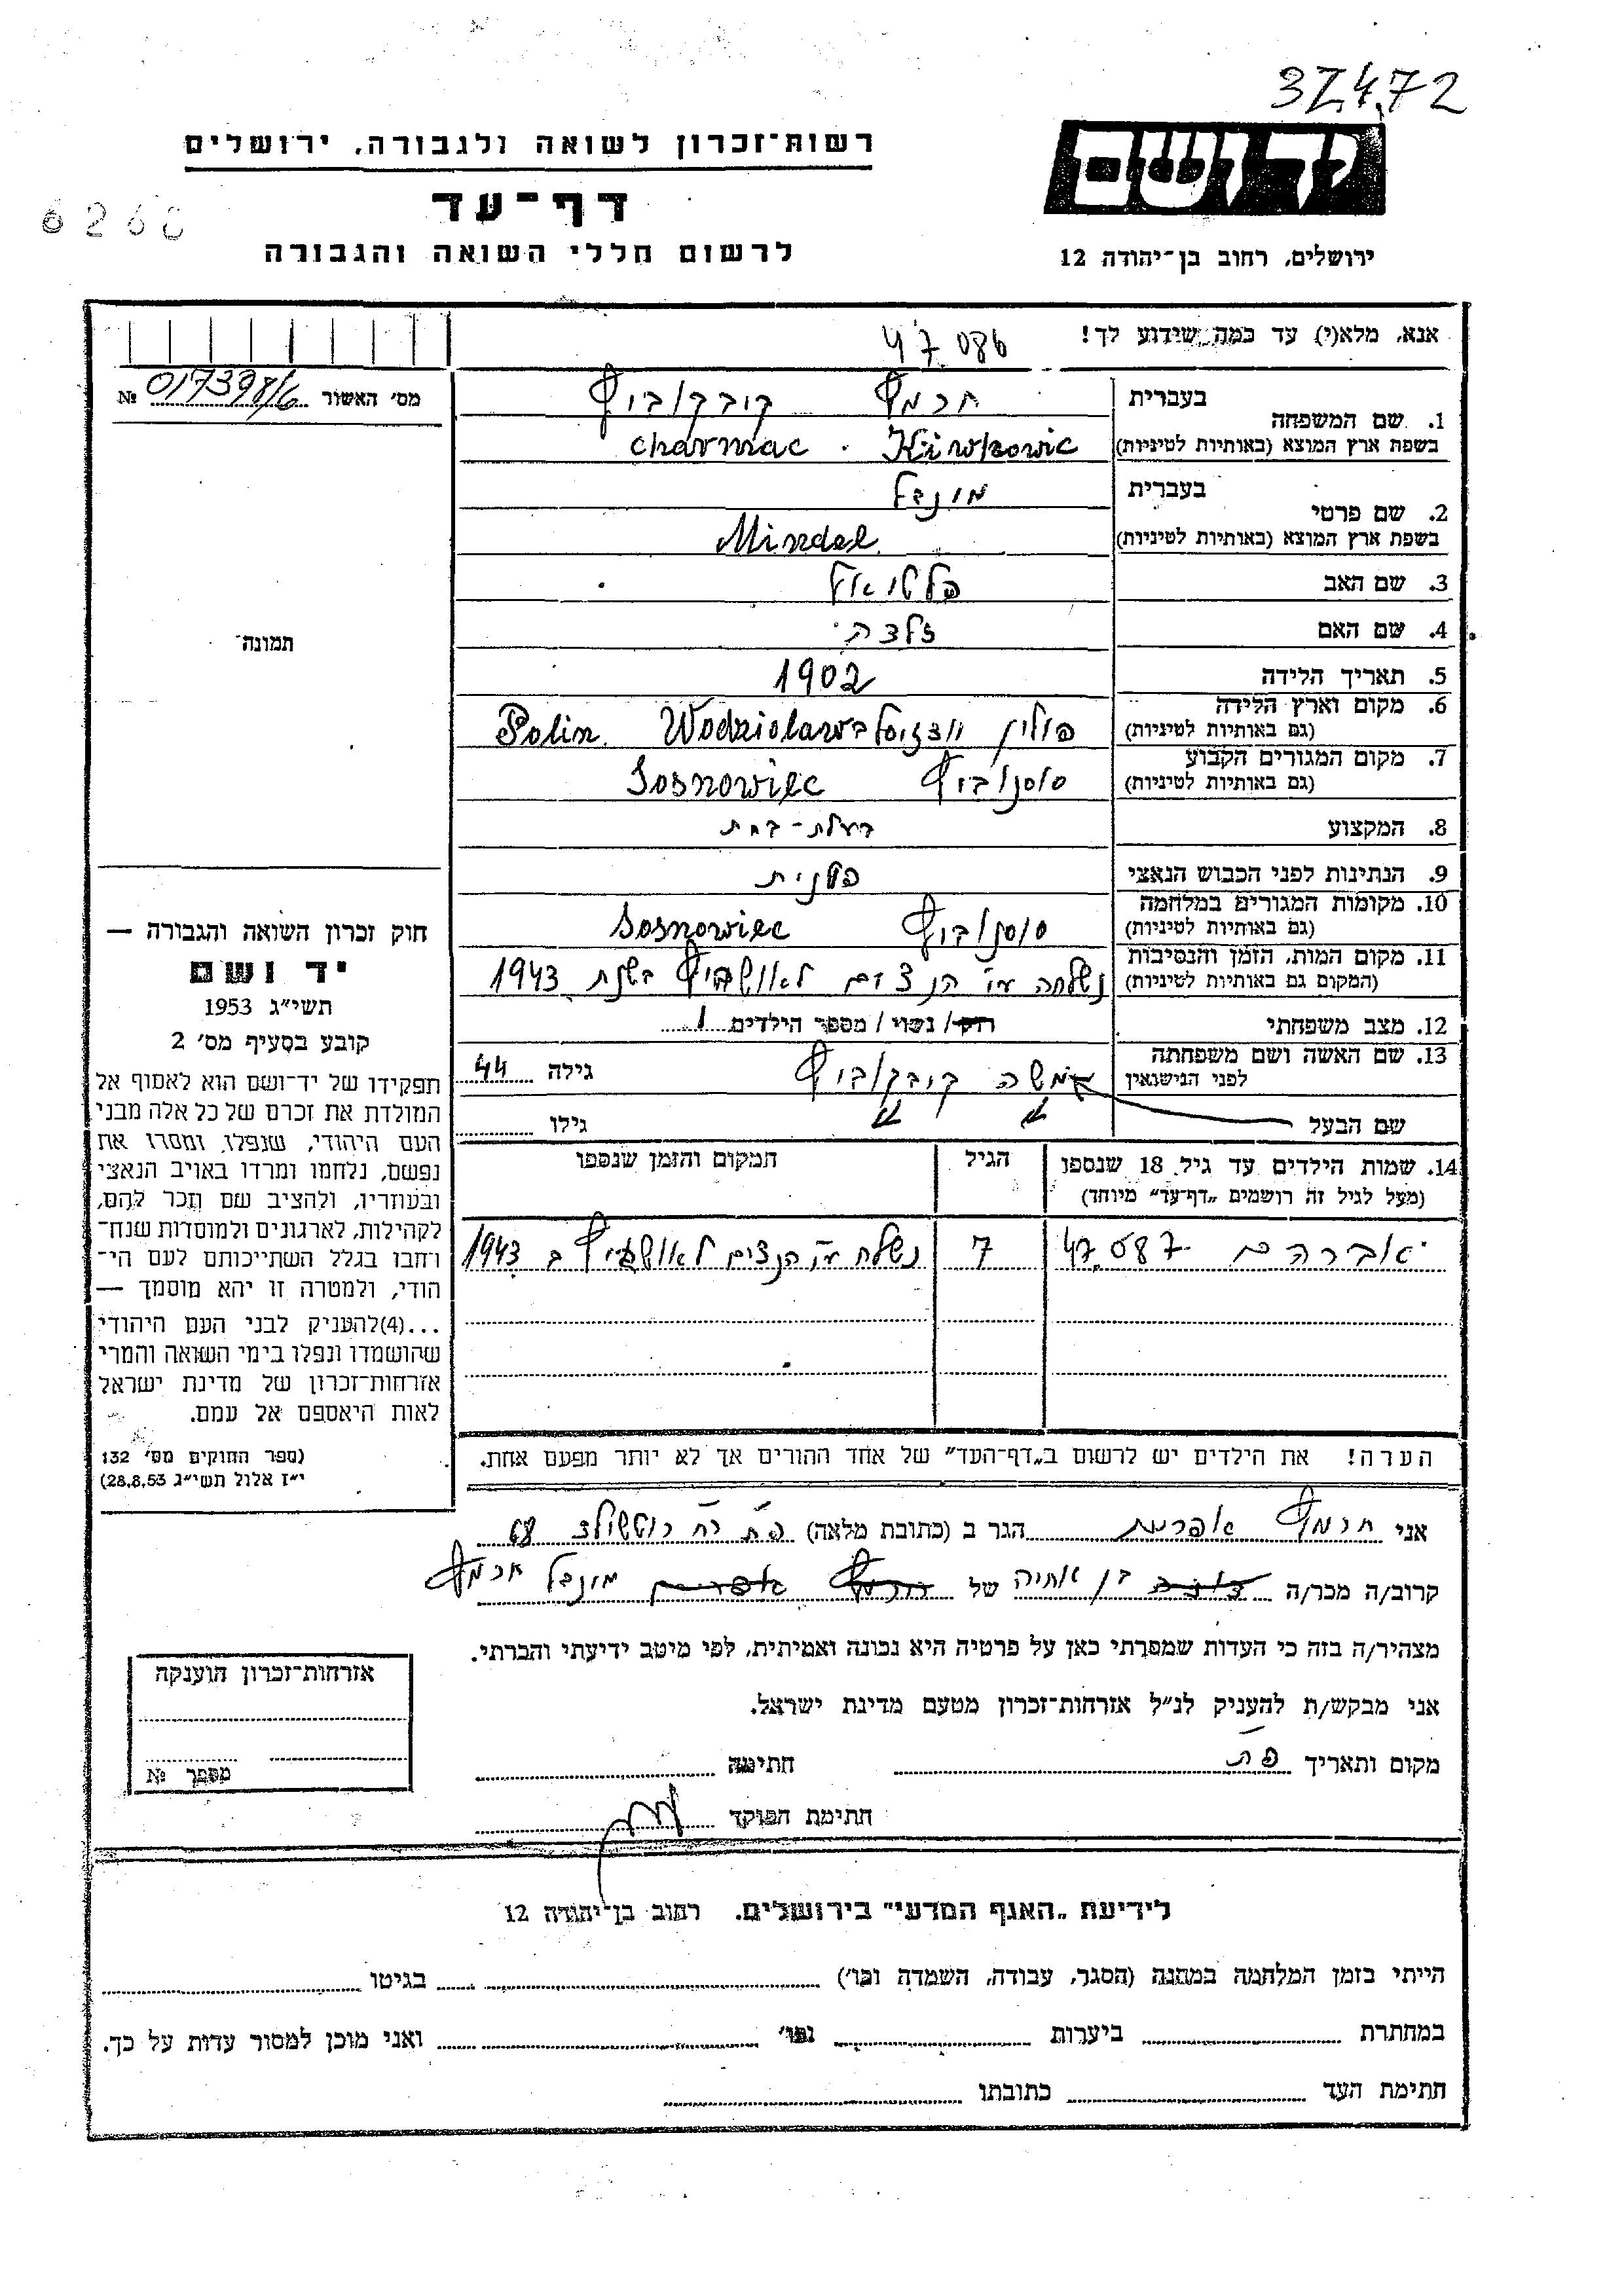 37.4.72
רשות־זכרון לשואה ולגבורה, ירושלים
דף־עד
לרשום חללי השואה והגבורה
ירושלים, רחוב בן־יהודה 12
אנא, מלא(י) עד כמה שידוע לך!
47.086
מס׳ האשור 017398/6 №
1. שם המשפחה
בעברית
חרמץ קובקוביץ
בשפת ארץ המוצא (באותיות לטיניות)
Charmac . Kiwkowic
2. שם פרטי
בעברית
מינדל
בשפת ארץ המוצא (באותיות לטיניות)
Mindel
3. שם האב
פלטיאל
4. שם האם
זלדה
5. תאריך הלידה
1902
6. מקום וארץ הלידה
(גם באותיות לטיניות)
פולין Wodzislaw Polin
7. מקום המגורים הקבוע
(גם באותיות לטיניות)
סוסנוביץ Sosnowiec
8. המקצוע
בעלת־בית
9. הנתינות לפני הכבוש הנאצי
פולנית
10. מקומות המגורים במלחמה
(גם באותיות לטיניות)
סוסנוביץ Sosnowiec
11. מקום המות, הזמן והנסיבות
(המקום גם באותיות לטיניות)
נשלחה ע״י הנצים לאושביץ בשנת 1943
12. מצב משפחתי
רוק/ נשוי / מספר הילדים 1
13. שם האשה ושם משפחתה
לפני הנישואין
משה קובקוביץ
גילה 44
שם הבעל
גילו
14. שמות הילדים עד גיל 18 שנספו
(מעל לגיל זה רושמים „דף־עד״ מיוחד)
הגיל
המקום והזמן שנספו
אברהם 47.087
7
נשלח ע״י הנצים לאושביץ ב 1943
הערה! את הילדים יש לרשום ב„דף־העד״ של אחד ההורים אך לא יותר מפעם אחת.
תמונה
חוק זכרון השואה והגבורה —
יד ושם
תשי״ג 1953
קובע בסעיף מס׳ 2
תפקידו של יד־ושם הוא לאסוף אל
המולדת את זכרם של כל אלה מבני
העם היהודי, שנפלו, ומסרו את
נפשם, נלחמו ומרדו באויב הנאצי
ובעוזריו, ולהציב שם וזכר להם,
לקהילות, לארגונים ולמוסדות שנח־
רובו בגלל השתייכותם לעם הי־
הודי, ולמטרה זו יהא מוסמך —
...(4)להעניק לבני העם היהודי
שהושמדו ונפלו בימי השואה והמרי
אזרחות־זכרון של מדינת ישראל
לאות היאספם אל עמם.
(ספר החוקים מס׳ 132
י״ז אלול תשי״ג 28.8.53)
אני חרמץ אפרים הגר ב (כתובת מלאה) פ״ת רח׳ רוטשילד
קרוב/ה מכר/ה בן אחיה של מינדל חרמץ
מצהיר/ה בזה כי העדות שמסרתי כאן על פרטיה היא נכונה ואמיתית, לפי מיטב ידיעתי והכרתי.
אני מבקש/ת להעניק לנ״ל אזרחות־זכרון מטעם מדינת ישראל.
מקום ותאריך פ״ת חתימה
חתימת הפוקד
אזרחות־זכרון הוענקה
מספר №
לידיעת „האגף המדעי״ בירושלים. רחוב בן־יהודה 12
הייתי בזמן המלחמה במחנה (הסגר, עבודה, השמדה וכו׳) בגיטו
במחתרת ביערות וכו׳ ואני מוכן למסור עדות על כך.
חתימת העד כתובתו